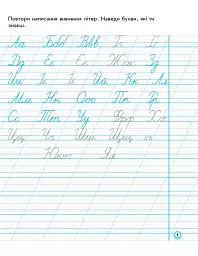 Повтори написання вивчених літер. Наведи букви, які ти
знаєш.
Аа Бб Вв Гг Ґґ
Дд Ее Єє Жж Зз
Ии Іі Її Йй Кк Лл
Мм Нн Оо Пп Рр
Сс Тт Уу Фф Хх
Цц Чч Шш Щщ ь
Юю Яя